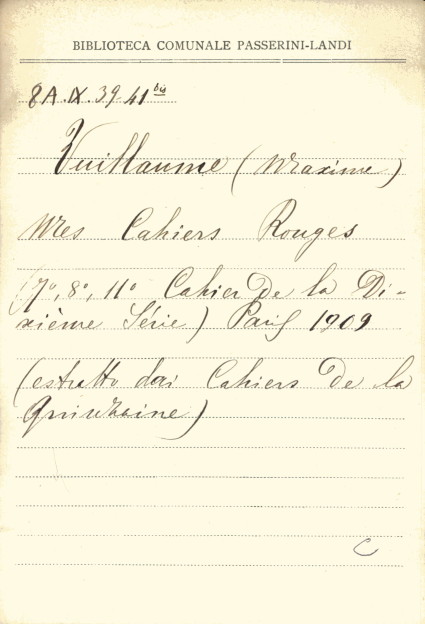 BIBLIOTECA COMUNALE PASSERINI-LANDI
8A.IX.39-41 bis
Vuillaume (Maxime)
Mes Cahiers Rouges
(7°, 8°, 11° Cahier De la Di-
xième Série) Paris 1909
(estratto dai Cahiers De la
Quinzaine)
C